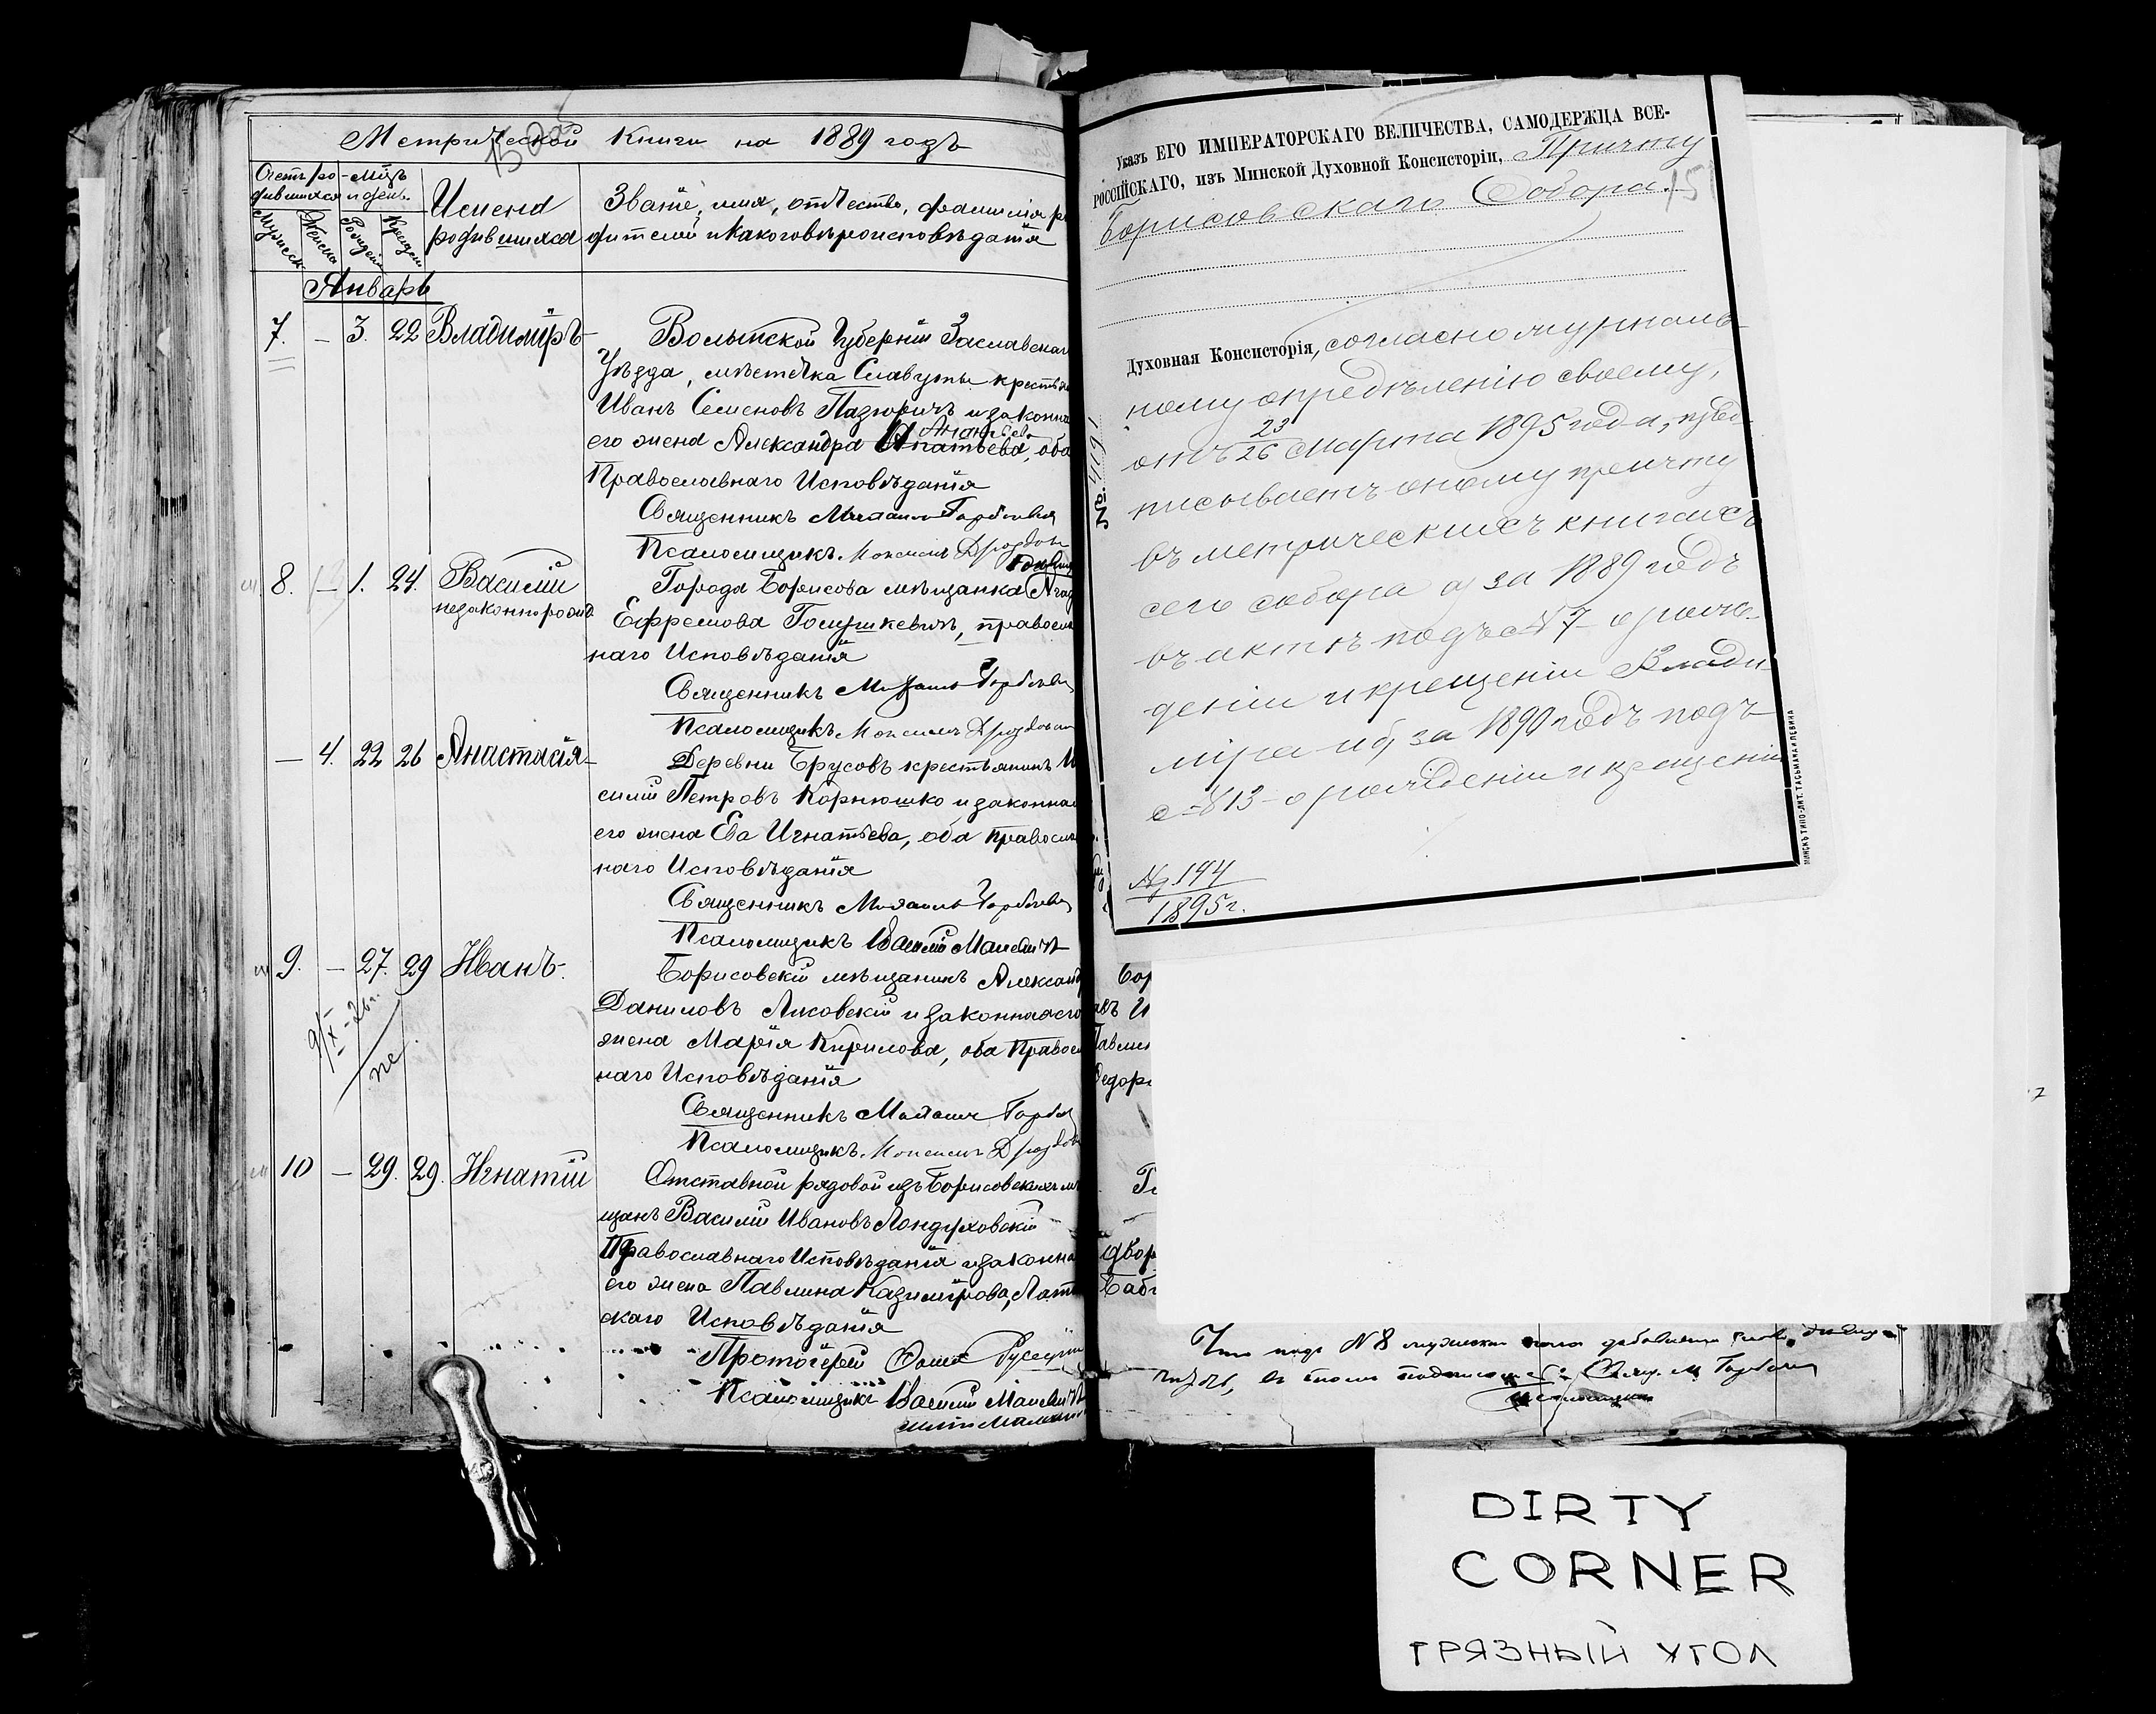 Метрической книги на 1889 годъ
Счетъ ро-
дившихся
Мцъ
и день.
Мужеск.
Женска
Рожден
Крещен
Имена
родившихся
Званіе, имя, отчество, фамилія ро
дителей и какого вѣроисповѣданія
Январь
7. – 3. 22 Владиміръ
Волынской Губерніи Заславскаго
Уѣзда, мѣстечка Славуты крестья
Иванъ Семеновъ Пазюричъ и законна
Ананьева
его жена Александра Игнатьева, оба
Православнаго Исповѣданія
Священникъ Михаилъ Горбачев
Псаломщикъ Максимъ Дроздов
8. – 1. 24. Василій
незаконнорожд
Города Борисова мѣщанка
Ефремова Голушкевичъ, правосл
наго Исповѣданія
Священникъ Михаилъ Горбачев
Псаломщикъ Максимъ Дроздов
– 4. 22 26 Анастасія
Деревни Брусовъ крестьянинъ
силій Петровъ Корнюшко и законна
его жена Ева Игнатьева, оба правосла
наго Исповѣданія
Священникъ Михаилъ Горбачев
Псаломщикъ Василій Малевичъ
9. – 27. 29 Иванъ.
Борисовскій мѣщанинъ Александ
Даниловъ Лисовскій и законная его
жена Марія Кирилова, оба Правосл
наго Исповѣданія
Священникъ Михаилъ Горбач
Псаломщикъ Максимъ Дроздов
10 – 29. 29. Игнатій
Отставной рядовой изъ Борисовскихъ мѣ
щанъ Василій Ивановъ Лондуховскій
Православнаго Исповѣданія и законна
его жена Павлина Казимірова, Лати
скаго Исповѣданія
Протоіерей
Псаломщикъ Василій Малевичъ
Указъ ЕГО ИМПЕРАТОРСКАГО ВЕЛИЧЕСТВА, САМОДЕРЖЦА ВСЕ-
РОССІЙСКАГО, изъ Минской Духовной Консисторіи, Причту
Борисовскаго Собора.
15
Духовная Консисторія, согласно журналь-
ному опредѣленію своему,
отъ 23/26 Марта 1895 года, пред-
писываетъ оному причту
въ метрическихъ книгахъ
сего собора а, за 1889 годъ
въ актѣ подъ №7 о рож-
деніи и крещеніи Влади
міра и б, за 1890 годъ подъ
№13 – о рожденіи и крещеніи
№ 4191
№ 144
1895 г.
МИНСКЪ ТИПО-ЛИТ. ТАСЬМАНА И ЛЕВИНА
Бор
Павлин
Федоро
двор
Баб
DIRTY
CORNER
ГРЯЗНЫЙ УГОЛ